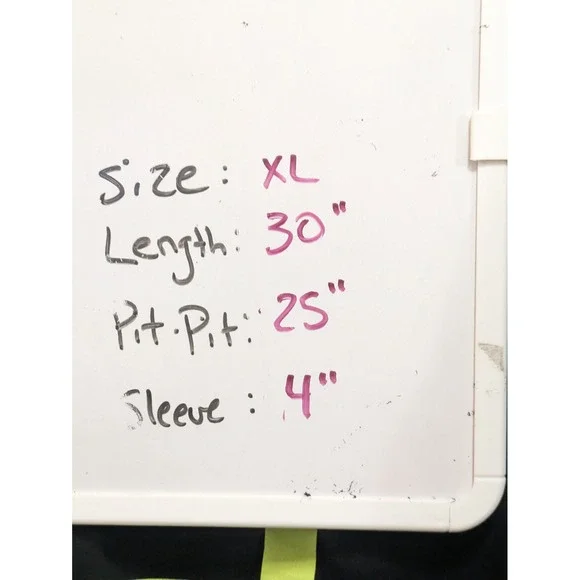 Size: XL
Length: 30"
Pit-Pit: 25"
Sleeve: 4"